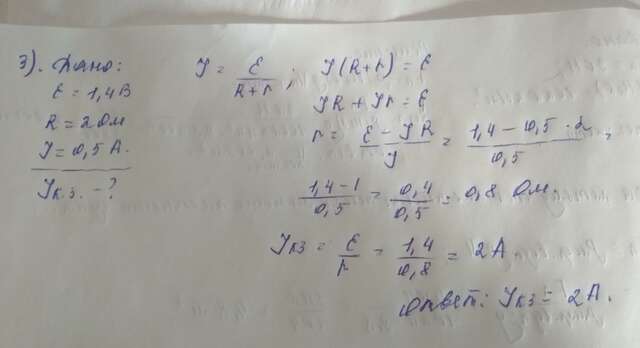 3). Дано:
E = 1,4 В
R = 2 Ом
J = 0,5 А.
Jк.з. - ?
J = E / (R+r) ; J(R+r) = E
JR + Jr = E
r = (E - JR) / J = (1,4 - 0,5 · 2) / 0,5 =
(1,4 - 1) / 0,5 = 0,4 / 0,5 = 0,8 Ом.
Jкз = E / r = 1,4 / 0,8 = 2 А
Ответ: Jкз = 2А.